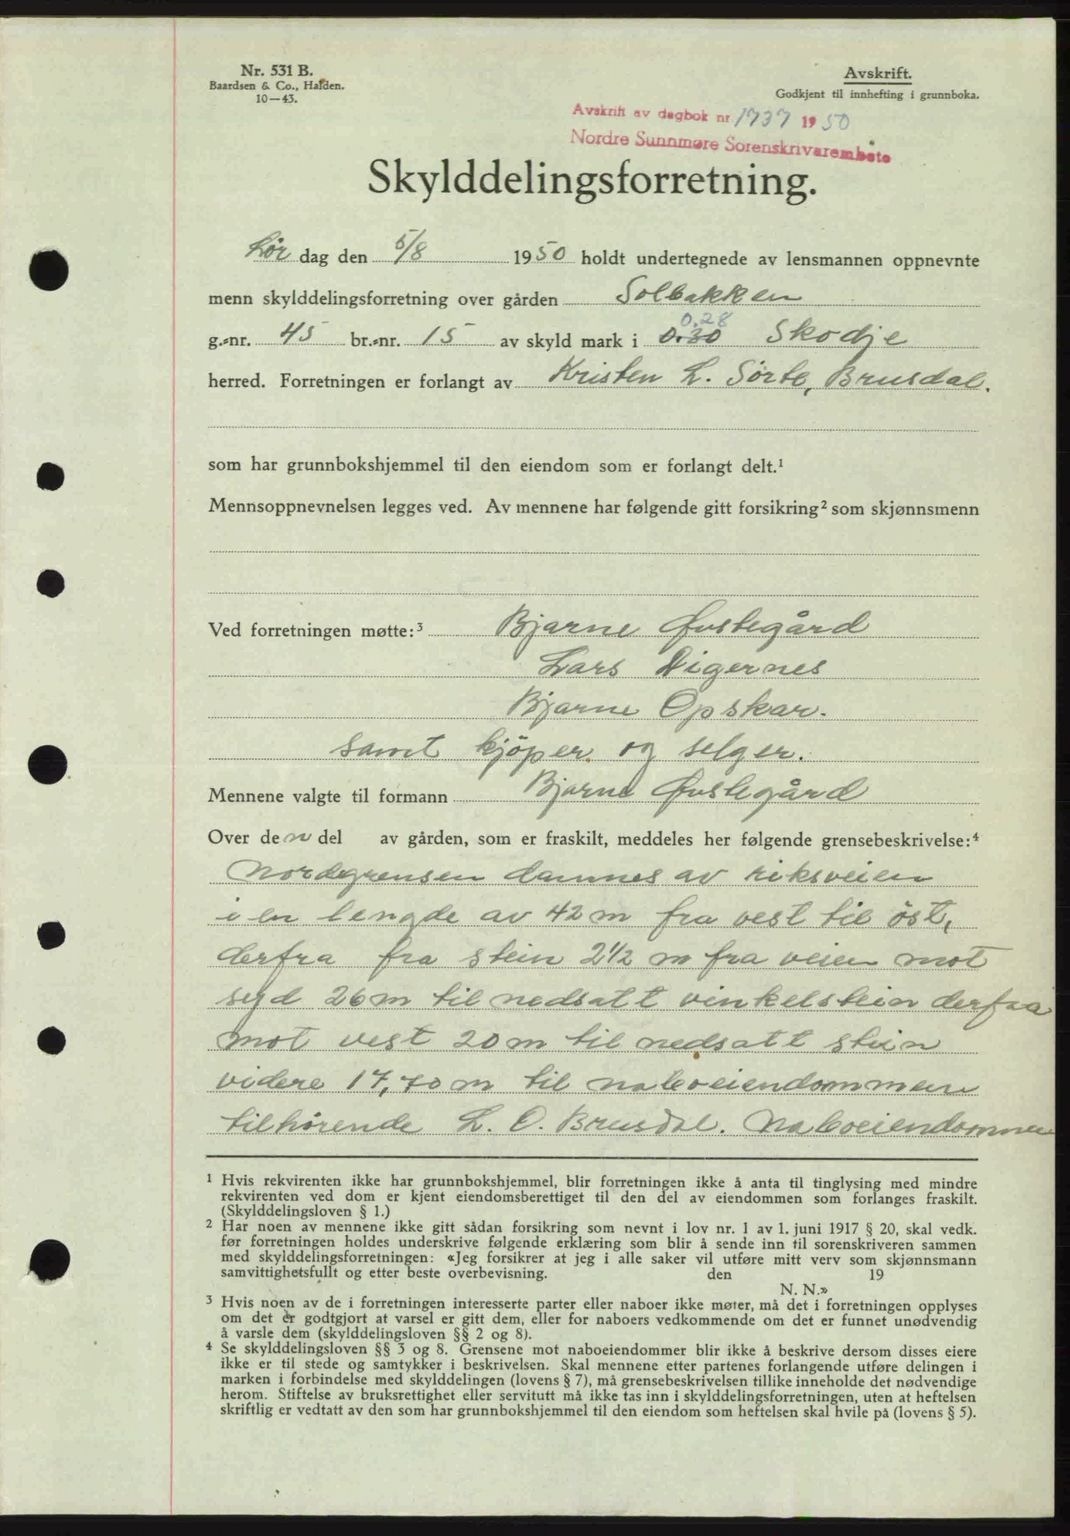 Nr. 531 B.
Baardsen & Co., Halden.
10—43.
Avskrift.
Godkjent til innhefting i grunnboka.
Avskrift av dagbok nr 1737 1950
Nordre Sunnmøre Sorenskrivarembete
Skylddelingsforretning.
Lør dag den 5/8 1950 holdt undertegnede av lensmannen oppnevnte
menn skylddelingsforretning over gården Solbakken
0.28
g.-nr. 45 br.-nr. 15 av skyld mark i 0.30 Skodje
herred. Forretningen er forlangt av Kristen L. Sørte, Brusdal.
som har grunnbokshjemmel til den eiendom som er forlangt delt.¹
Mennsoppnevnelsen legges ved. Av mennene har følgende gitt forsikring² som skjønnsmenn
Ved forretningen møtte:³ Bjarne Øvstegård
Lars Digernes
Bjarne Opskar.
samt kjöper og selger.
Mennene valgte til formann Bjarne Øvstegård
Over den del av gården, som er fraskilt, meddeles her følgende grensebeskrivelse:⁴
Nordgrensen dannes av riksveien
i en lengde av 42 m fra vest til öst,
derfra fra stein 2½ m fra veien mot
syd 26 m til nedsatt vinkelstein derfra
mot vest 20 m til nedsatt stein
videre 17,70 m til naboeiendommen
tilhörende L. O. Brusdal. Naboeiendommen
¹ Hvis rekvirenten ikke har grunnbokshjemmel, blir forretningen ikke å anta til tinglysing med mindre
rekvirenten ved dom er kjent eiendomsberettiget til den del av eiendommen som forlanges fraskilt.
(Skylddelingsloven § 1.)
² Har noen av mennene ikke gitt sådan forsikring som nevnt i lov nr. 1 av 1. juni 1917 § 20, skal vedk.
før forretningen holdes underskrive følgende erklæring som blir å sende inn til sorenskriveren sammen
med skylddelingsforretningen: «Jeg forsikrer at jeg i alle saker vil utføre mitt verv som skjønnsmann
samvittighetsfullt og etter beste overbevisning. den 19
N. N.»
³ Hvis noen av de i forretningen interesserte parter eller naboer ikke møter, må det i forretningen opplyses
om det er godtgjort at varsel er gitt dem, eller for naboers vedkommende om det er funnet unødvendig
å varsle dem (skylddelingsloven §§ 2 og 8).
⁴ Se skylddelingsloven §§ 3 og 8. Grensene mot naboeiendommer blir ikke å beskrive dersom disses eiere
ikke er til stede og samtykker i beskrivelsen. Skal mennene etter partenes forlangende utføre delingen i
marken i forbindelse med skylddelingen (lovens § 7), må grensebeskrivelsen tillike inneholde det nødvendige
herom. Stiftelse av bruksrettighet eller servitutt må ikke tas inn i skylddelingsforretningen, uten at heftelsen
skriftlig er vedtatt av den som har grunnbokshjemmel til den eiendom som heftelsen skal hvile på (lovens § 5).